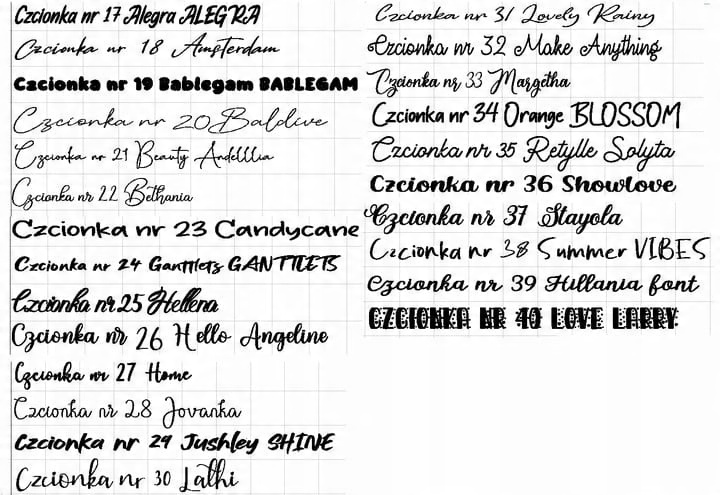 Czcionka nr 17 Alegra ALEGRA
Czcionka nr 18 Amsterdam
Czcionka nr 19 Bablegam BABLEGAM
Czcionka nr 20 Baldive
Czcionka nr 21 Beauty Andelllia
Czcionka nr 22 Bethania
Czcionka nr 23 Candycane
Czcionka nr 24 Ganttlets GANTTLETS
Czcionka nr 25 Hellena
Czcionka nr 26 Hello Angeline
Czcionka nr 27 Home
Czcionka nr 28 Jovanka
Czcionka nr 29 Jushley SHINE
Czcionka nr 30 Lathi
Czcionka nr 31 Lovely Rainy
Czcionka nr 32 Make Anything
Czcionka nr 33 Margetha
Czcionka nr 34 Orange BLOSSOM
Czcionka nr 35 Retylle Solyta
Czcionka nr 36 Showlove
Czcionka nr 37 Stayola
Czcionka nr 38 Summer VIBES
Czcionka nr 39 Hillania font
CZCIONKA NR 40 LOVE LARRY